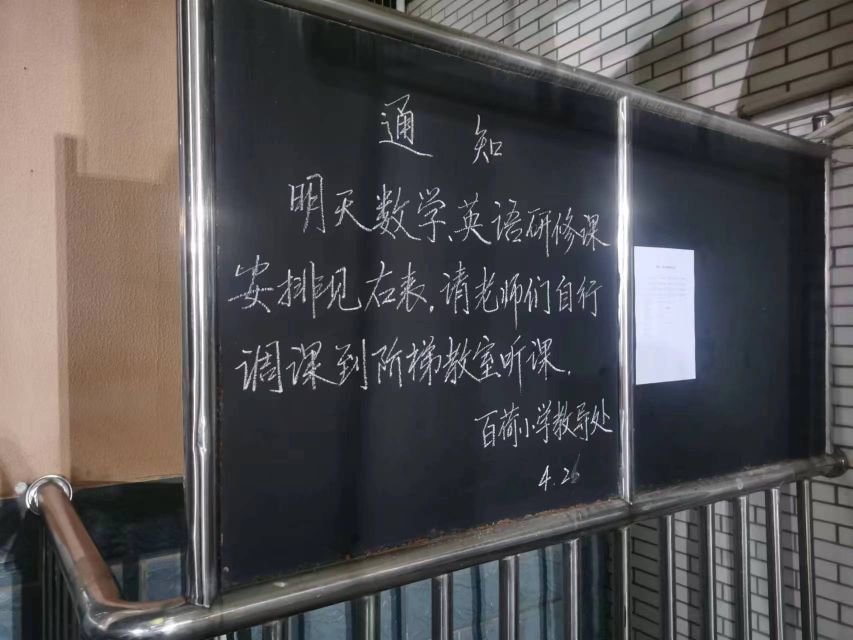 通知
明天数学、英语研修课
安排见右表，请老师们自行
调课到阶梯教室听课.
百荷小学教导处
4.26